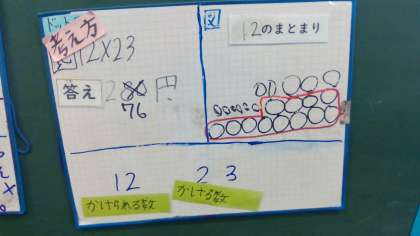 ドット
考え方
図
12のまとまり
式 12×23
答え 276円
12 23
かけられる数 かける数